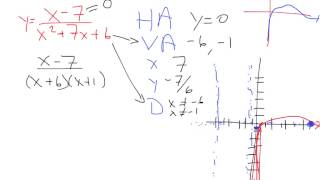 y = x - 7 = 0 / x² + 7x + 6
x - 7 / (x + 6)(x + 1)
HA y = 0
VA -6, -1
X 7
Y -7/6
D x ≠ -6
x ≠ -1